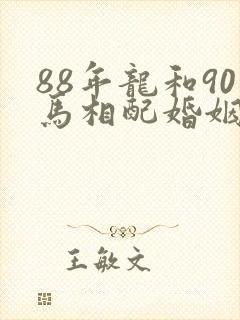 88年龍和90
馬相配婚姻
王敏文